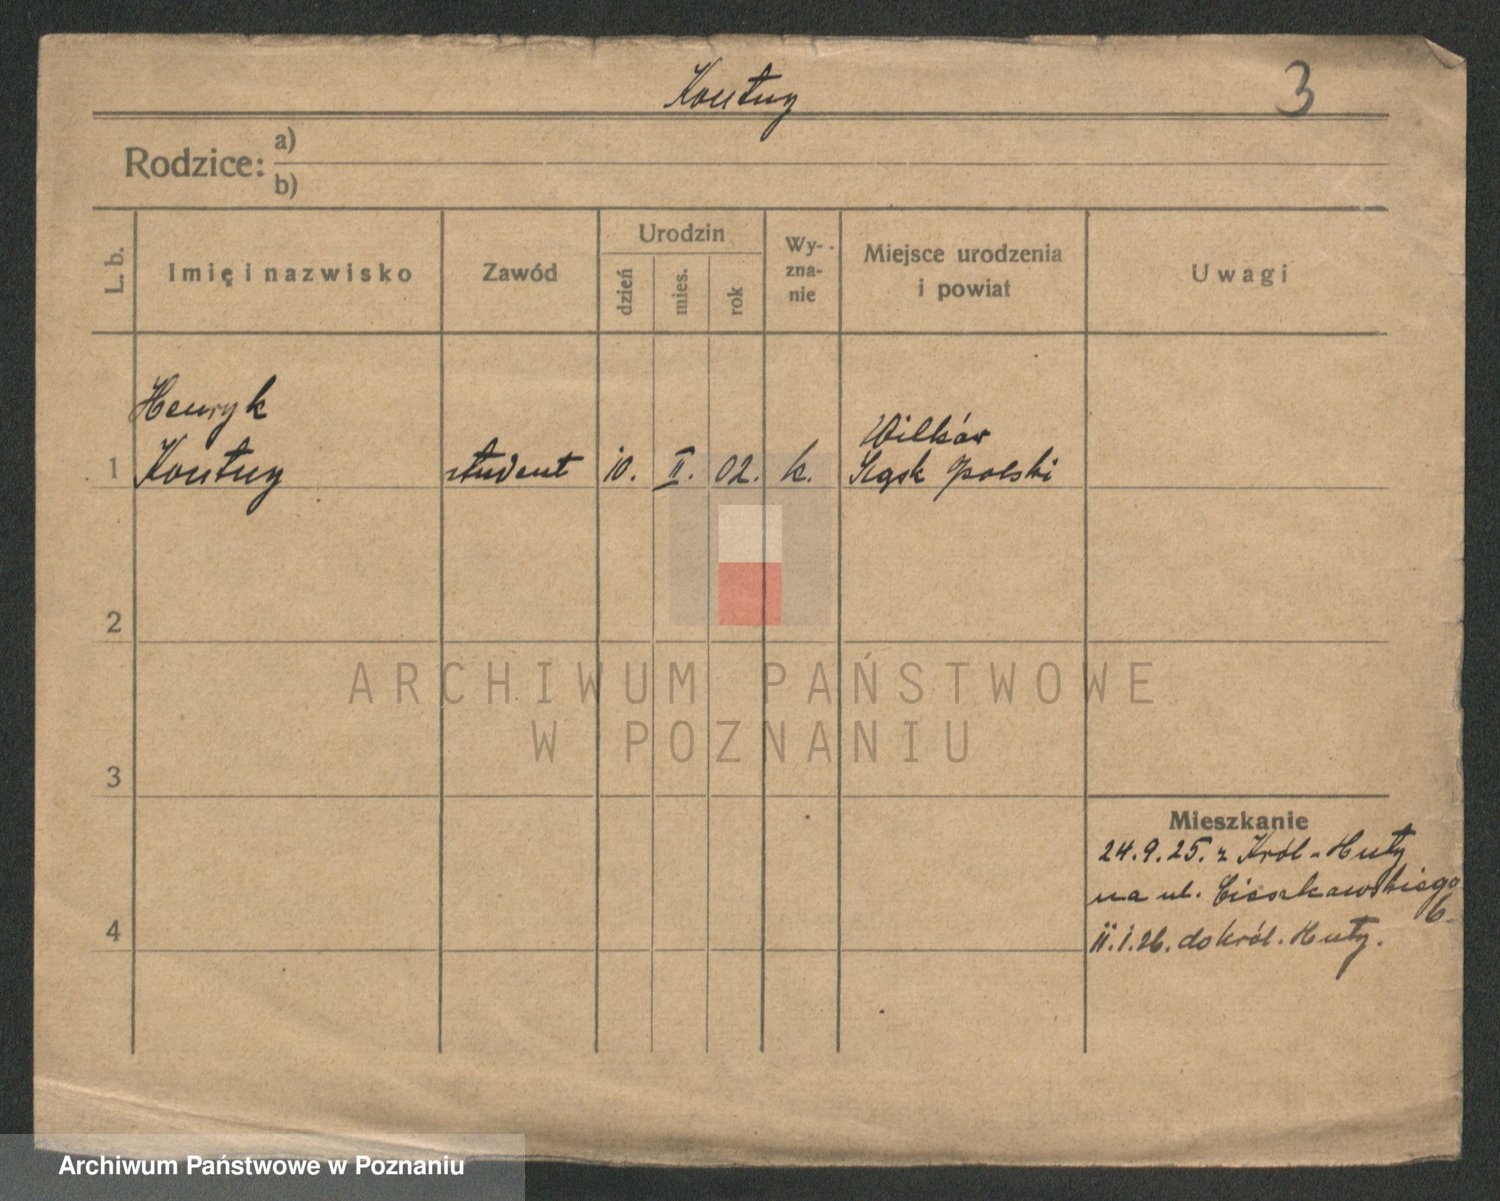 Koutny
3
Rodzice:
a)
b)
L. b.
Imię i nazwisko
Zawód
Urodzin
dzień
mies.
rok
Wy-
zna-
nie
Miejsce urodzenia
i powiat
Uwagi
Henryk
Wilków
1 Koutny student 10. II. 02. k. Śląsk polski
2
ARCHIWUM PAŃSTWOWE
W POZNANIU
3
Mieszkanie
24.9.25. z Król-Huty
na ul. Cieszkowskiego
6
4
11.1.26. do Król. Huty.
Archiwum Państwowe w Poznaniu